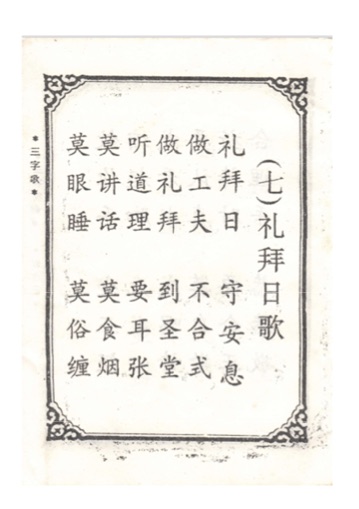 (七)礼拜日歌
礼拜日 守安息
做工夫 不合式
做礼拜 到圣堂
听道理 要耳张
莫讲话 莫食烟
莫眼睡 莫俗缠
*三字歌*